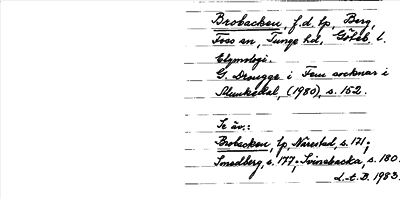 Brobacken, f.d. lp, Berg,
Foss sn, Tunge hd, Göteb. l.
Etymologi.
G. Drougge i Fem socknar i
Munkedal, (1980), s. 152.
Se äv.:
Brobacken, lp, Närestad, s. 121;
Smedberg, s. 177; Svinebacka, s. 180.
L-t. B. 1983